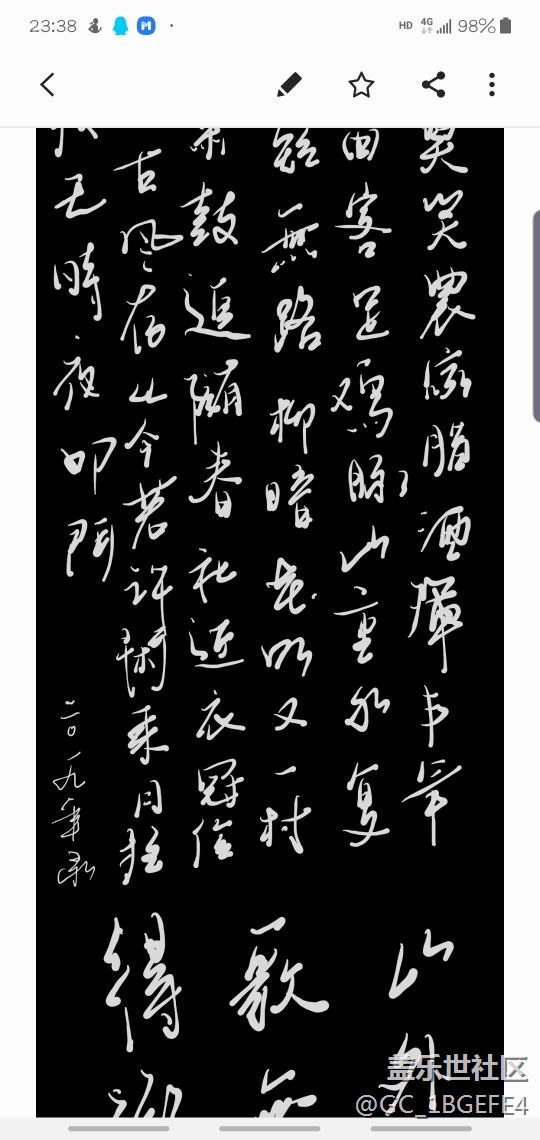 23:38
HD 4G 98%
莫笑農家腊酒渾丰年
留客足鸡豚山重水复
疑無路柳暗花明又一村
箫鼓追隨春社近衣冠俭
古风存从今若許閑乘月拄
杖无時夜叩門
二〇一九年
山外
歌
得
盖乐世社区
@GC_1BGEFE4